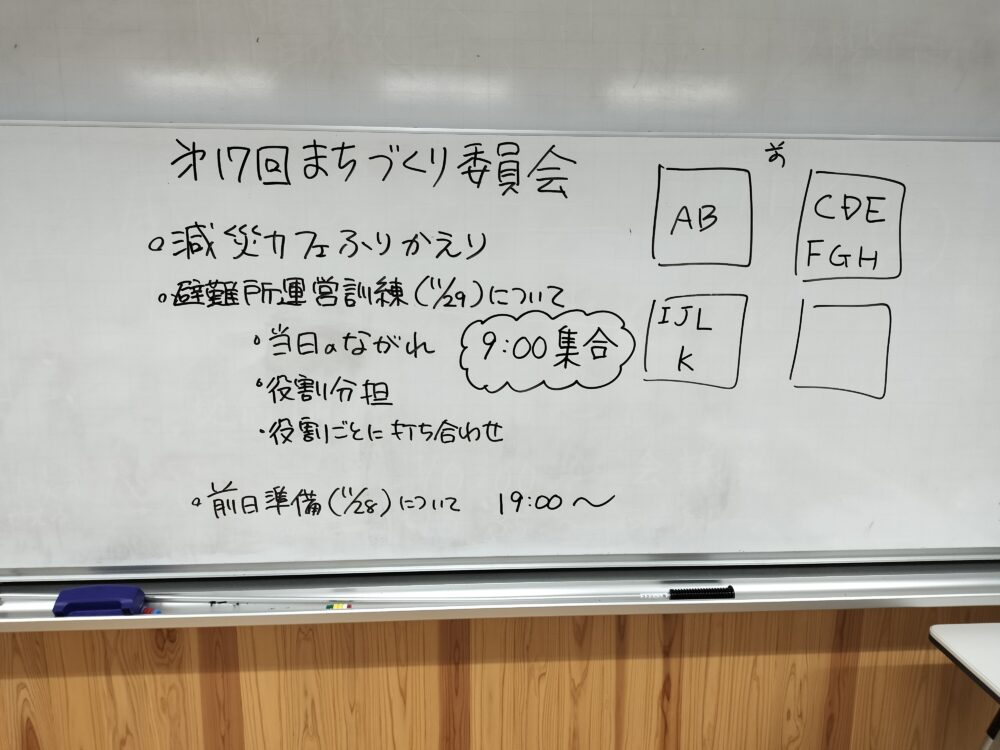 第17回まちづくり委員会
。減災カフェふりかえり
。避難所運営訓練(11/29)について
。当日のながれ
9:00集合
・役割分担
・役割ごとに打ち合わせ
。前日準備(11/28)について 19:00〜
AB
CDE
FGH
IJL
K